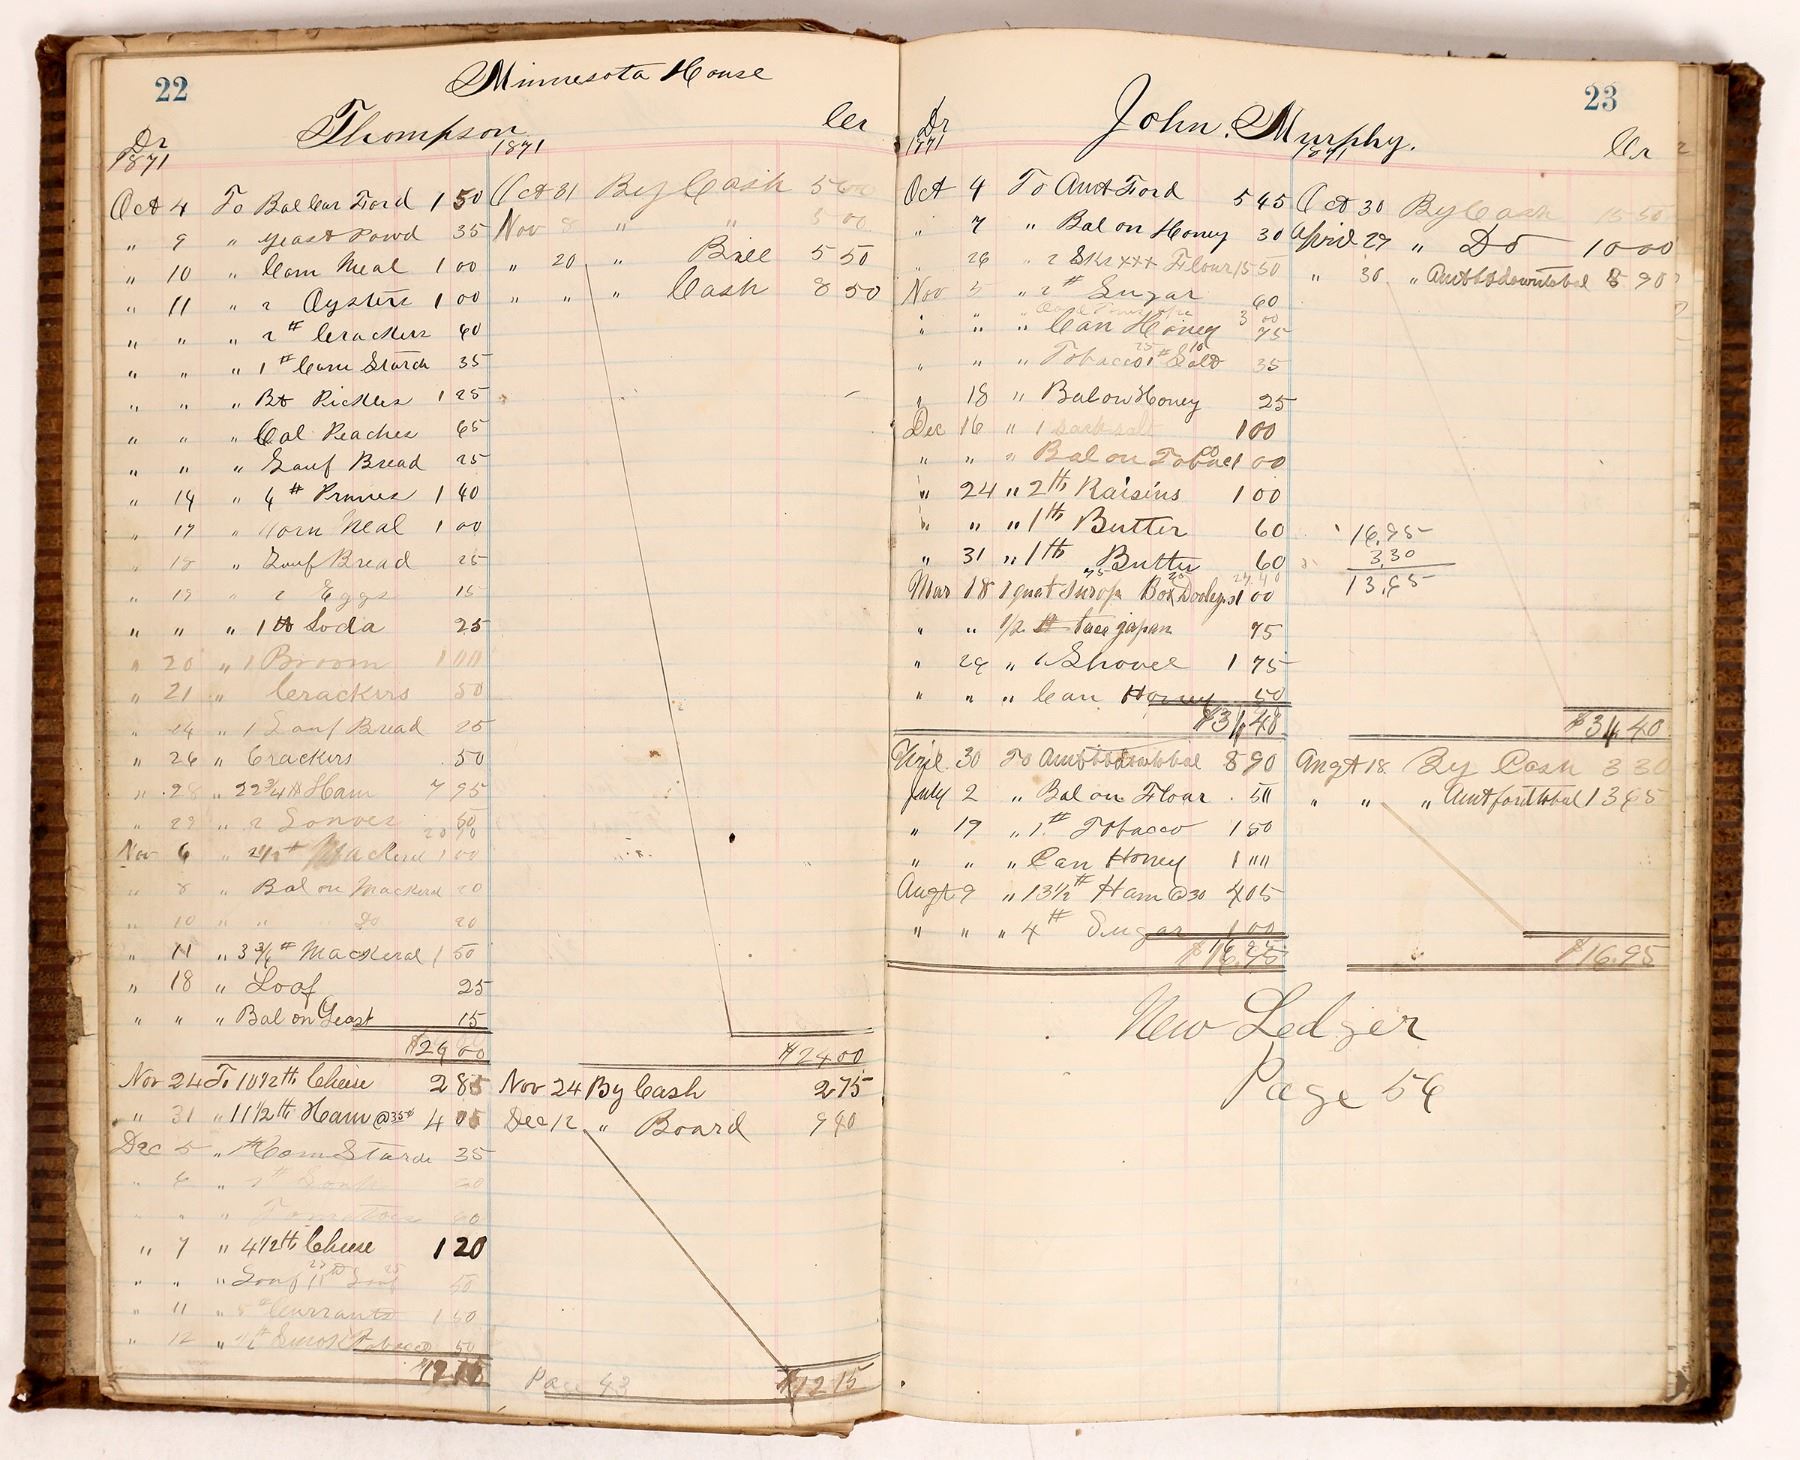 22
Minnesota House
Dr Thompson Cr
1871 1871
Oct 4 To Bal Car Ford 1 50
" 9 " Yeast Powd 35
" 10 " Corn Meal 1 00
" 11 " 2 Oysters 1 00
" " " 2 # Crackers 60
" " " 1 # Corn Starch 35
" " " Bt Pickles 1 25
" " " Cal Peaches 65
" " " Loaf Bread 25
" 14 " 4 # Prunes 1 40
" 17 " Corn Meal 1 00
" 18 " Loaf Bread 25
" 19 " 2 Eggs 15
" " " 1 ℔ Soda 25
" 20 " 1 Broom 1 00
" 21 " Crackers 50
" 24 " 1 Loaf Bread 25
" 26 " Crackers 50
" 28 " 22 3/4 ℔ Ham 7 95
" 29 " 2 Loaves 50
Nov 6 " 2 1/2 # Mackeral 1 00
" 8 " Bal on Mackeral 20
" 10 " " " Do 20
" 11 " 3 3/4 # Mackeral 1 50
" 18 " Loaf 25
" " " Bal on Yeast 15
$24 00
Nov 24 To 10 1/2 ℔ Cheise 2 85
" 31 " 11 1/2 ℔ Ham @ 35¢ 4 05
Dec 5 " Corn Starch 35
" 6 " 60
" " " Tomatoes 60
" 7 " 4 1/2 ℔ Cheese 1 20
" " " Loaf 25 Loaf 25 50
" 11 " Currants 1 50
" 12 " Tobacco 50
$12 15
Oct 31 By Cash 5 00
Nov 8 " " 5 00
" 20 " Bill 5 50
" " " Cash 8 50
$24 00
Nov 24 By Cash 2 75
Dec 12 " Board 9 40
Page 43 $12 15
23
Dr John Murphy. Cr
1871 1871
Oct 4 To Amt Ford 5 45
" 7 " Bal on Honey 30
" 26 " 2 Sks xxx Flour 15 50
Nov 5 " 2 # Sugar 60
3 00
" " " Can Honey 75
" " " Tobacco 25 1# Salt 10 35
" 18 " Bal on Honey 25
Dec 16 " 1 sack salt 1 00
" " " Bal on Tobac 1 00
" 24 " 2 ℔ Raisins 1 00
" " " 1 ℔ Butter 60
" 31 " 1 ℔ Butter 60
Mar 18 1 quat surop 75 Box 1 00
" " 1/2 ℔ taee japan 75
" 29 " 1 Shovel 1 75
" " " Can Honey 50
$31 40
April 30 To Amt 8 90
July 2 " Bal on Flour 50
" 19 " 1 # Tobacco 1 50
" " " Can Honey 1 00
Augt 9 " 13 1/2 # Ham @ 30 4 05
" " " 4 # Sugar 1 00
$16.95
Oct 30 By Cash 15 50
April 29 " Do 10 00
" 30 " Amt 8 90
16.95
3.30
13.65
$31 40
Augt 18 By Cash 3 30
" " " Amt 13 65
$16.95
New Ledger
Page 56